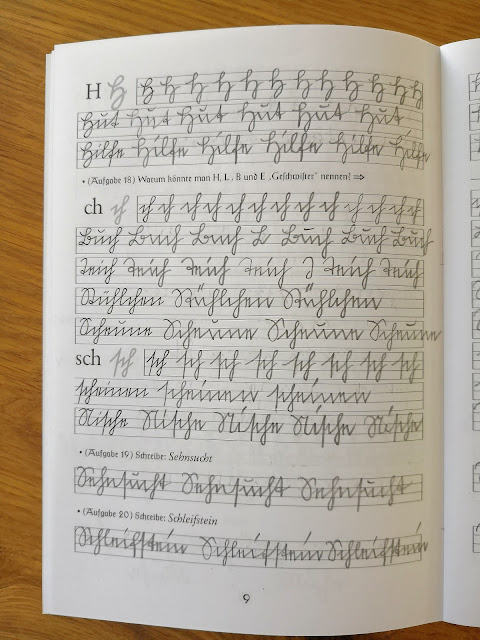 H H H H H H H H H H H H H
Hut Hut Hut Hut Hut Hut
Hilfe Hilfe Hilfe Hilfe Hilfe Hilfe
• (Aufgabe 18) Warum könnte man H, L, B und E „Geſchwiſter“ nennen? ⇒
ch ch ch ch ch ch ch ch ch ch ch ch ch ch
Buch Buch Buch B Buch Buch Buch
Teich Teich Teich Teich T Teich Teich
Stühlchen Stühlchen Stühlchen
Scheune Scheune Scheune Scheune
sch sch sch sch sch sch sch sch sch sch
scheinen scheinen scheinen
Nische Nische Nische Nische Nische
• (Aufgabe 19) Schreibe: Sehnsucht
Sehnsucht Sehnsucht Sehnsucht
• (Aufgabe 20) Schreibe: Schleifstein
Schleifstein Schleifstein Schleifstein
9